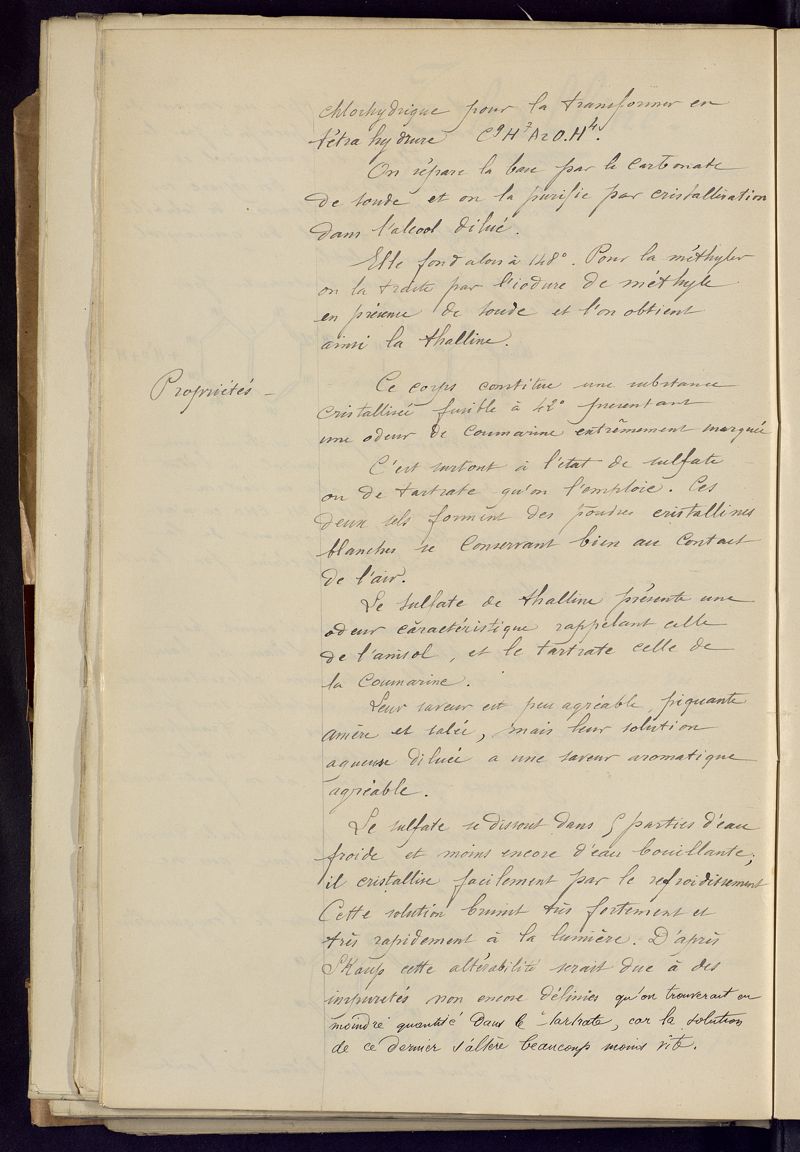 chlorhydrique pour la transformer en
tétra hydrure C⁹H⁷AzO.H⁴.
On sépare la base par le carbonate
de soude et on la purifie par cristallisation
dans l'alcool dilué.
Elle fond alors à 148°. Pour la méthyler
on la traite par l'iodure de méthyle
en présence de soude et l'on obtient
ainsi la thalline.
Propriétés -
Ce corps constitue une substance
cristallisée fusible à 42° présentant
une odeur de coumarine extrêmement marquée
C'est surtout à l'état de sulfate
ou de tartrate qu'on l'emploie. Ces
deux sels forment des poudres cristallines
blanches se conservant bien au contact
de l'air.
Le sulfate de thalline présente une
odeur caractéristique rappelant celle
de l'anisol, et le tartrate celle de
la coumarine.
Leur saveur est peu agréable, piquante
amère et salée, mais leur solution
aqueuse diluée a une saveur aromatique
agréable.
Le sulfate se dissout dans 5 parties d'eau
froide et moins encore d'eau bouillante;
il cristallise facilement par le refroidissement
Cette solution brunit très fortement et
très rapidement à la lumière. D'après
Skaup cette altérabilité serait due à des
impuretés non encore définies qu'on trouverait en
moindre quantité dans le tartrate, car la solution
de ce dernier s'altère beaucoup moins vite.